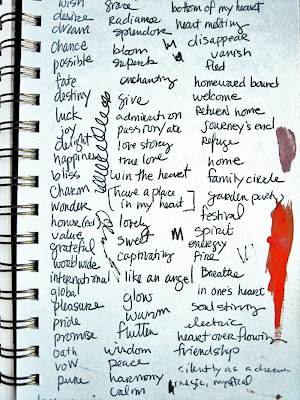 wish
desire
dream
chance
possible
fate
destiny
luck
joy
delight
happiness
bliss
charm
wonder
honor(ed)
value
grateful
worldwide
international
global
pleasure
pride
promise
oath
vow
pure
grace
radiance
splendore
bloom
superb
enchanting
give
admiration
passionate
love story
true love
win the heart
[have a place
in my heart]
lovely
sweet
captivating
like an angel
glow
warm
flutter
wisdom
peace
harmony
calm
bottom of my heart
heart melting
disappear
vanish
fled
homeward bound
welcome
Return home
journey's end
Refuge
home
family circle
garden party
festival
spirit
energy
Fire
Breathe
in one's heart
soul stirring
electric
heart overflowing
friendship
silently as a dream
music, mystical